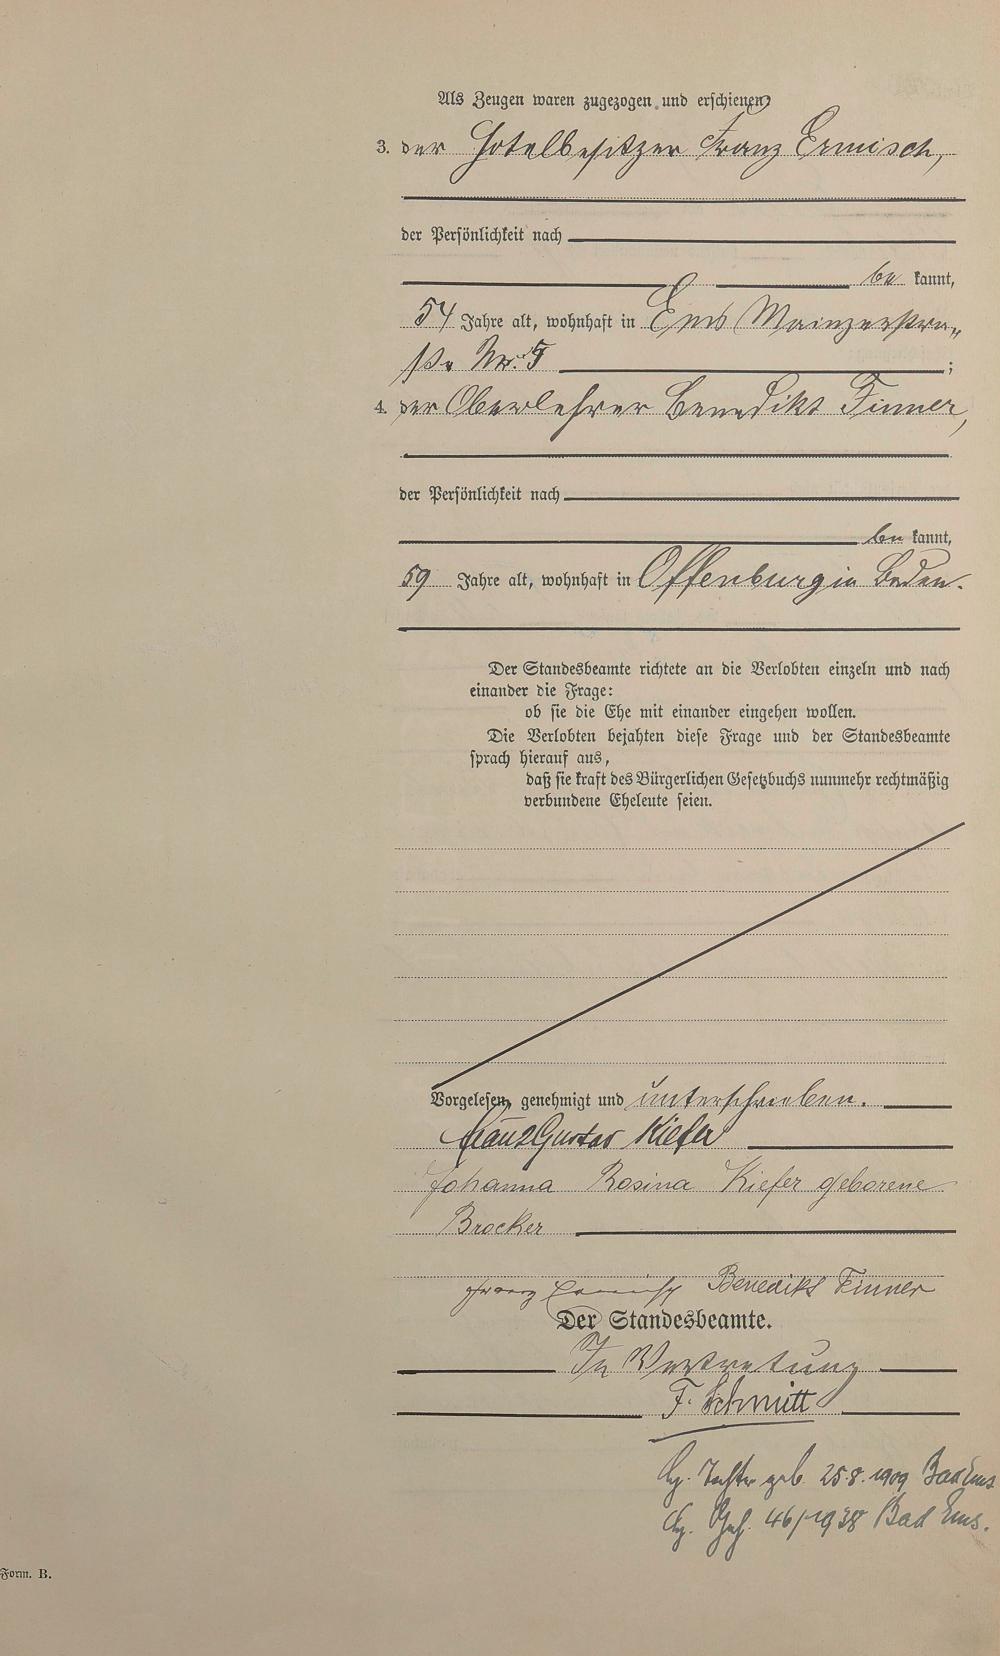 Als Zeugen waren zugezogen und erschienen:
3. der Hotelbesitzer Franz Ermisch,
der Persönlichkeit nach
be kannt,
54 Jahre alt, wohnhaft in Ems Mainzerstra-
ße Nr. 5 ;
4. der Oberlehrer Benedikt Finner,
der Persönlichkeit nach
be kannt,
59 Jahre alt, wohnhaft in Offenburg in Baden.
Der Standesbeamte richtete an die Verlobten einzeln und nach
einander die Frage:
ob sie die Ehe mit einander eingehen wollen.
Die Verlobten bejahten diese Frage und der Standesbeamte
sprach hierauf aus,
daß sie kraft des Bürgerlichen Gesetzbuchs nunmehr rechtmäßig
verbundene Eheleute seien.
Vorgelesen, genehmigt und unterschrieben.
Gustav Kiefer
Johanna Rosina Kiefer geborene
Brocker
Franz Ermisch Benedikt Finner
Der Standesbeamte.
In Vertretung
F. Schmitt
Tochter geb. 25.8.1909 Bad Ems
46/1938 Bad Ems.
Form. B.